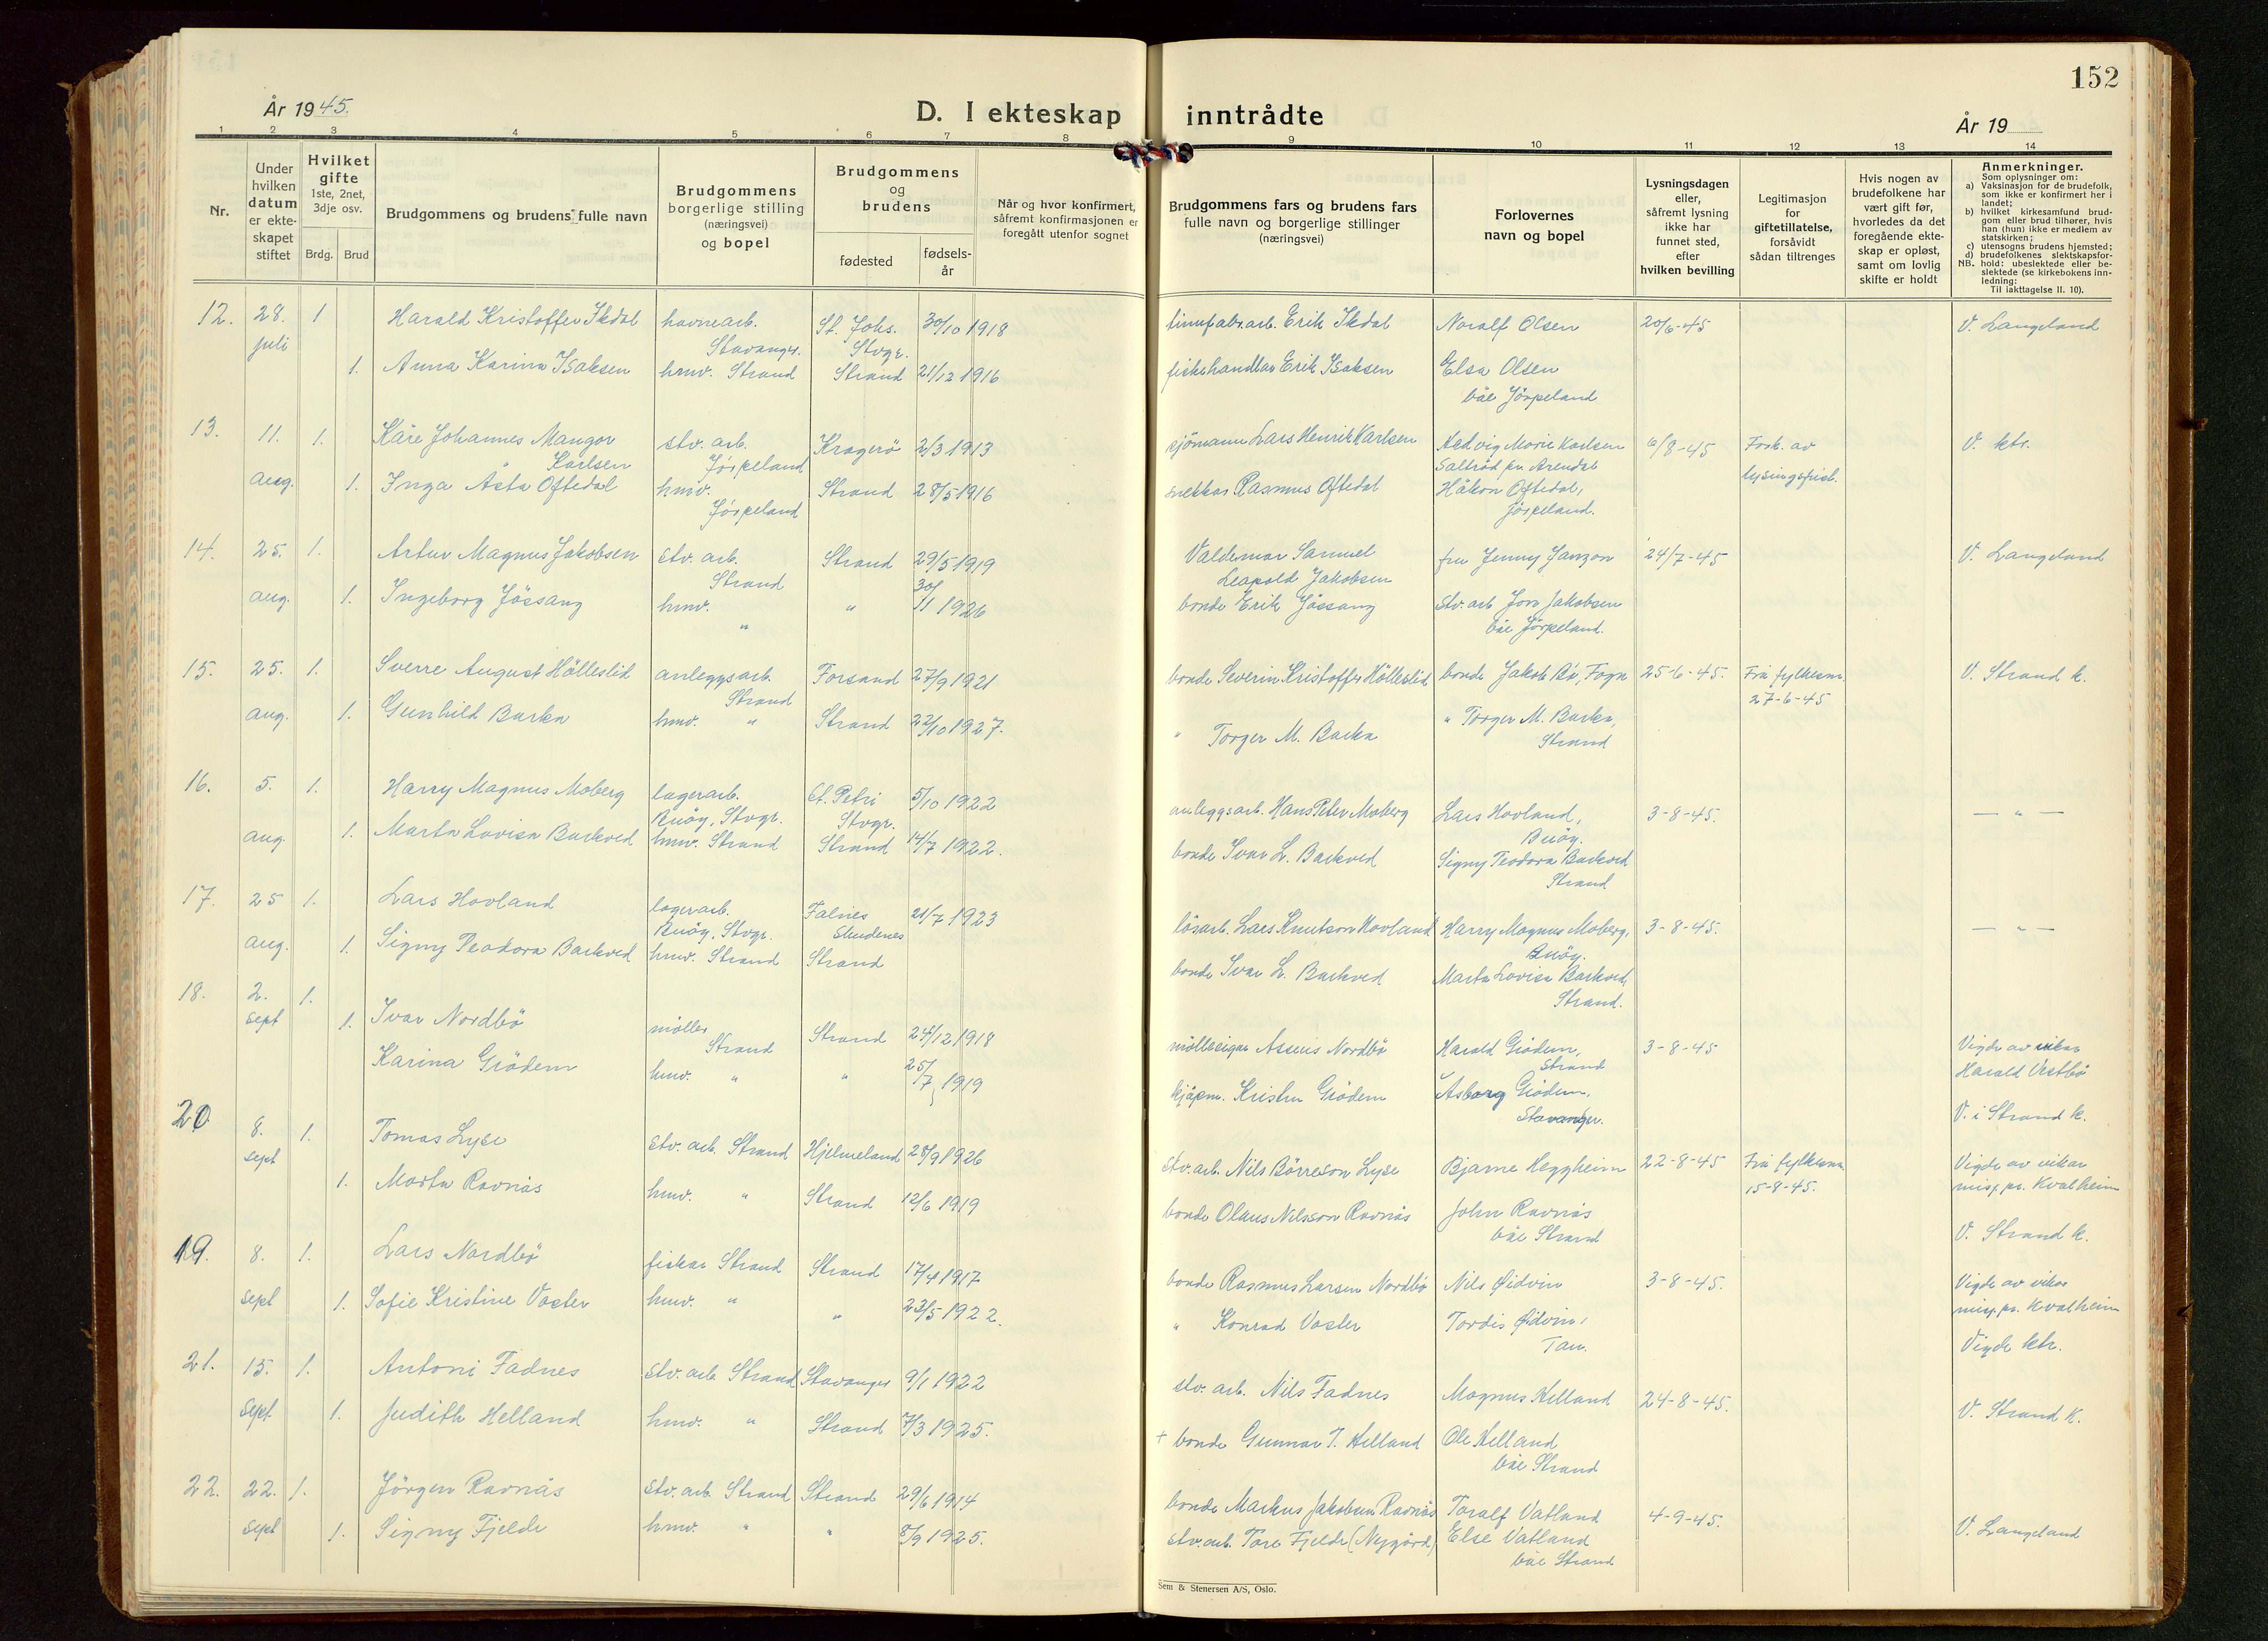 152
År 1945.
D. I ekteskap inntrådte
År 19
1 2 3 4 5 6 7 8 9 10 11 12 13 14
Nr.
Under hvilken datum er ekte-skapet stiftet
Hvilket gifte
1ste, 2net, 3dje osv.
Brdg. Brud
Brudgommens og brudens fulle navn
Brudgommens borgerlige stilling (næringsvei) og bopel
Brudgommens og brudens
fødested
fødsels-år
Når og hvor konfirmert, såfremt konfirmasjonen er foregått utenfor sognet
Brudgommens fars og brudens fars fulle navn og borgerlige stillinger (næringsvei)
Forlovernes navn og bopel
Lysningsdagen eller, såfremt lysning ikke har funnet sted, efter hvilken bevilling
Legitimasjon for giftetillatelse, forsåvidt sådan tiltrenges
Hvis nogen av brudefolkene har vært gift før, hvorledes da det foregående ekte-skap er opløst, samt om lovlig skifte er holdt
Anmerkninger.
Som oplysninger om:
a) Vaksinasjon for de brudefolk, som ikke er konfirmert her i landet;
b) hvilket kirkesamfund brud-gom eller brud tilhører, hvis han (hun) ikke er medlem av statskirken;
c) utensogns brudens hjemsted;
d) brudefolkenes slektskapsfor-hold: ubeslektede eller be-slektede (se kirkebokens inn-ledning:
NB.
Til iakttagelse II. 10).
12. 28. juli 1 Harald Kristoffer Ikdal havnearb. Stavanger. St. Johs. Stvgr. 30/10 1918 Erik Ikdal Noralf Olsen 20/6-45 V. Langeland
1. Anna Karina Isaksen hmv. Strand Strand 21/12 1916 fiskehandler Erik Isaksen Elsa Olsen båe Jörpeland
13. 11. aug. 1. Kåre Johannes Mangor Karlsen stv. arb. Jörpeland Kragerö 2/3 1913 sjömann Lars Henrik Karlsen Hedvig Marie Karlsen Saltröd pr. Arendal 6/8-45 Fork. av lysingsfrist. V. ktr.
1. Inga Åsta Oftedal hmv. Jörpeland Strand 28/5 1916 snekkar Rasmus Oftedal Håkon Oftedal, Jörpeland.
14. 25. aug. 1. Artur Magnus Jakobsen stv. arb. Strand Strand 29/5 1919 Valdemar Samuel Leopold Jakobsen fru Jenny Janzon 24/7-45 V. Langeland
1. Ingeborg Jössang hmv. " " 30/11 1926 bonde Erik Jössang stv. arb Jon Jakobsen båe Jörpeland.
15. 25. aug. 1. Sverre August Hölleslid anleggsarb. Strand Forsand 27/9 1921 bonde Severin Kristoffer Hölleslid bonde Jakob Bö, Fogn 25-6-45. Frå fylkesm. 27-6-45 V. Strand k.
1. Gunhild Barka hmv. " Strand 22/10 1927. " Torger M. Barka " Torger M. Barka, Strand
16. 5. aug. 1. Harry Magnus Moberg lagerarb. Buöy, Stvgr. St. Petri Stvgr. 5/10 1922 anleggsarb. Hans Peter Moberg Lars Hovland, Buöy. 3-8-45. — " —
1. Marta Lovisa Barkved hmv. Strand Strand 14/7 1922. bonde Ivar L. Barkved Signy Teodora Barkved Strand
17. 25 aug. 1. Lars Hovland lagerarb. Buöy, Stvgr. Falnes Skudenes 21/7 1923 lösarb. Lars Knutson Hovland Harry Magnus Moberg, Buöy. 3-8-45. — " —
1. Signy Teodora Barkved hmv. Strand Strand bonde Ivar L. Barkved Marta Lovisa Barkved, Strand.
18. 2. sept 1. Ivar Nordbö möller Strand Strand 24/12 1918 mölleeigar Nordbö Harald Grödem, Strand 3-8-45 Vigde av vikar Harald Vestbö
1. Karina Grödem hmv. " " 25/7 1919 kjöpm. Kristen Grödem Åsborg Grödem, Stavanger. V. i Strand k.
20 8. sept 1. Tomas Lyse stv. arb. Strand Hjelmeland 28/9 1926 stv. arb. Nils Börreson Lyse Bjarne Heggheim 22-8-45 Frå fylkesm. 15-8-45. Vigde av vikar misj. pr. Kvalheim
1. Marta Ravnås hmv. " Strand 12/6 1919 bonde Olaus Nilsson Ravnås John Ravnås båe Strand V. Strand k.
19. 8. sept 1. Lars Nordbö fiskar Strand Strand 17/4 1917 bonde Rasmus Larsen Nordbö Nils Øidvin 3-8-45. Vigde av vikar misj. pr. Kvalheim
1. Sofie Kristine Vaster hmv. " " 23/5 1922. " Konrad Vaster Tordis Øidvin, Tau. Vigde ktr.
21. 15. sept. 1. Antoni Fadnes stv. arb. Strand Stavanger 9/1 1922 stv. arb. Nils Fadnes Magnus Helland 24-8-45. V. Strand k.
1. Judith Helland hmv. " Strand 7/3 1925. + bonde Gunnar T. Helland Ole Helland båe Strand
22. 22. sept 1. Jörgen Ravnås stv. arb Strand Strand 29/6 1914 bonde Markus Jakobsen Ravnås Toralf Vatland 4-9-45. V. Langeland
1. Signy Fjelde hmv. " " 8/9 1925. stv. arb. Tore Fjelde (Nygård) Else Vatland båe Strand
Sem & Stenersen A/S, Oslo.